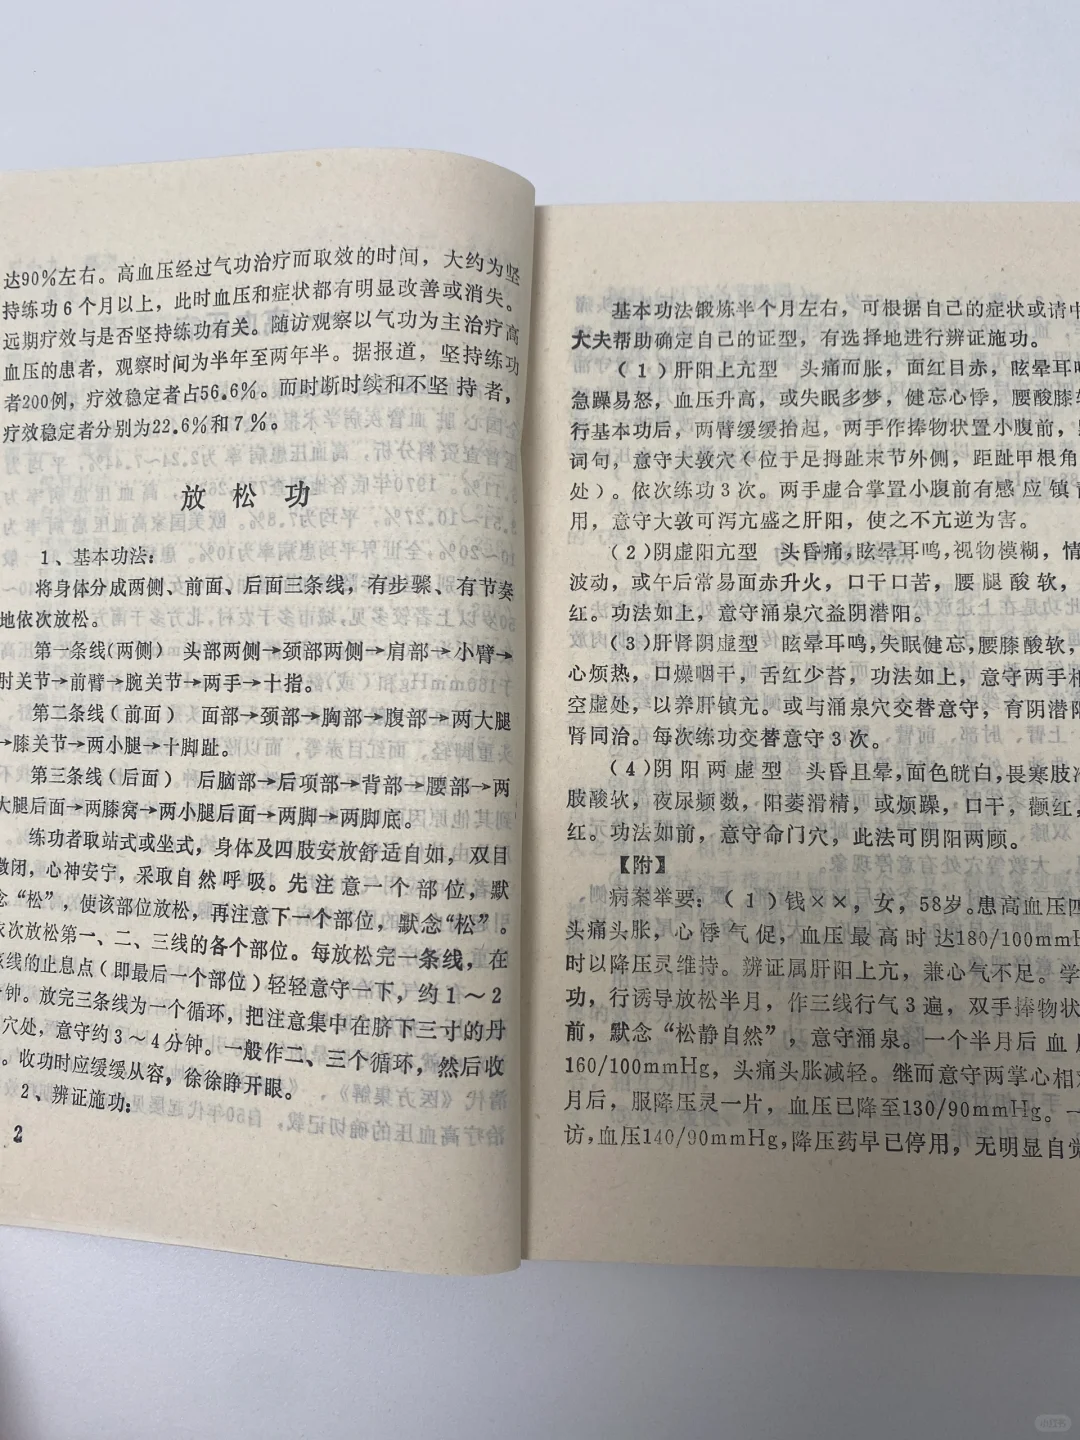 达90%左右。高血压经过气功治疗而取效的时间，大约为坚
持练功6个月以上，此时血压和症状都有明显改善或消失。
远期疗效与是否坚持练功有关。随访观察以气功为主治疗高
血压的患者，观察时间为半年至两年半。据报道，坚持练功
者200例，疗效稳定者占56.6%。而时断时续和不坚持者，
疗效稳定者分别为22.6%和7%。
放松功
1、基本功法：
将身体分成两侧、前面、后面三条线，有步骤、有节奏
地依次放松。
第一条线(两侧) 头部两侧→颈部两侧→肩部→小臂→
肘关节→前臂→腕关节→两手→十指。
第二条线(前面) 面部→颈部→胸部→腹部→两大腿
→膝关节→两小腿→十脚趾。
第三条线(后面) 后脑部→后项部→背部→腰部→两
大腿后面→两膝窝→两小腿后面→两脚→两脚底。
练功者取站式或坐式，身体及四肢安放舒适自如，双目
微闭，心神安宁，采取自然呼吸。先注意一个部位，默
念“松”，使该部位放松，再注意下一个部位，默念“松”。
依次放松第一、二、三线的各个部位。每放松完一条线，在
该线的止息点（即最后一个部位）轻轻意守一下，约1～2
钟。放完三条线为一个循环，把注意集中在脐下三寸的丹
穴处，意守约3～4分钟。一般作二、三个循环，然后收
。收功时应缓缓从容，徐徐睁开眼。
2、辨证施功：
2
基本功法锻炼半个月左右，可根据自己的症状或请中
大夫帮助确定自己的证型，有选择地进行辨证施功。
（1）肝阳上亢型 头痛而胀，面红目赤，眩晕耳鸣
急躁易怒，血压升高，或失眠多梦，健忘心悸，腰酸膝软
行基本功后，两臂缓缓抬起，两手作捧物状置小腹前，
词句，意守大敦穴（位于足拇趾末节外侧，距趾甲根角
处）。依次练功3次。两手虚合掌置小腹前有感应镇
用，意守大敦可泻亢盛之肝阳，使之不亢逆为害。
（2）阴虚阳亢型 头昏痛，眩晕耳鸣，视物模糊，情
波动，或午后常易面赤升火，口干口苦，腰腿酸软，
红。功法如上，意守涌泉穴益阴潜阳。
（3）肝肾阴虚型 眩晕耳鸣，失眠健忘，腰膝酸软，
心烦热，口燥咽干，舌红少苔，功法如上，意守两手相
空虚处，以养肝镇亢。或与涌泉穴交替意守，育阴潜阳
肾同治。每次练功交替意守3次。
（4）阴阳两虚型 头昏且晕，面色㿠白，畏寒肢冷
肢酸软，夜尿频数，阳萎滑精，或烦躁，口干，颧红，
红。功法如前，意守命门穴，此法可阴阳两顾。
【附】
病案举要：（1）钱××，女，58岁。患高血压四
头痛头胀，心悸气促，血压最高时达180/100mmH
时以降压灵维持。辨证属肝阳上亢，兼心气不足。学
功，行诱导放松半月，作三线行气3遍，双手捧物状
前，默念“松静自然”，意守涌泉。一个半月后血
160/100mmHg，头痛头胀减轻。继而意守两掌心相
月后，服降压灵一片，血压已降至130/90mmHg。一
访，血压140/90mmHg，降压药早已停用，无明显自觉
小红书